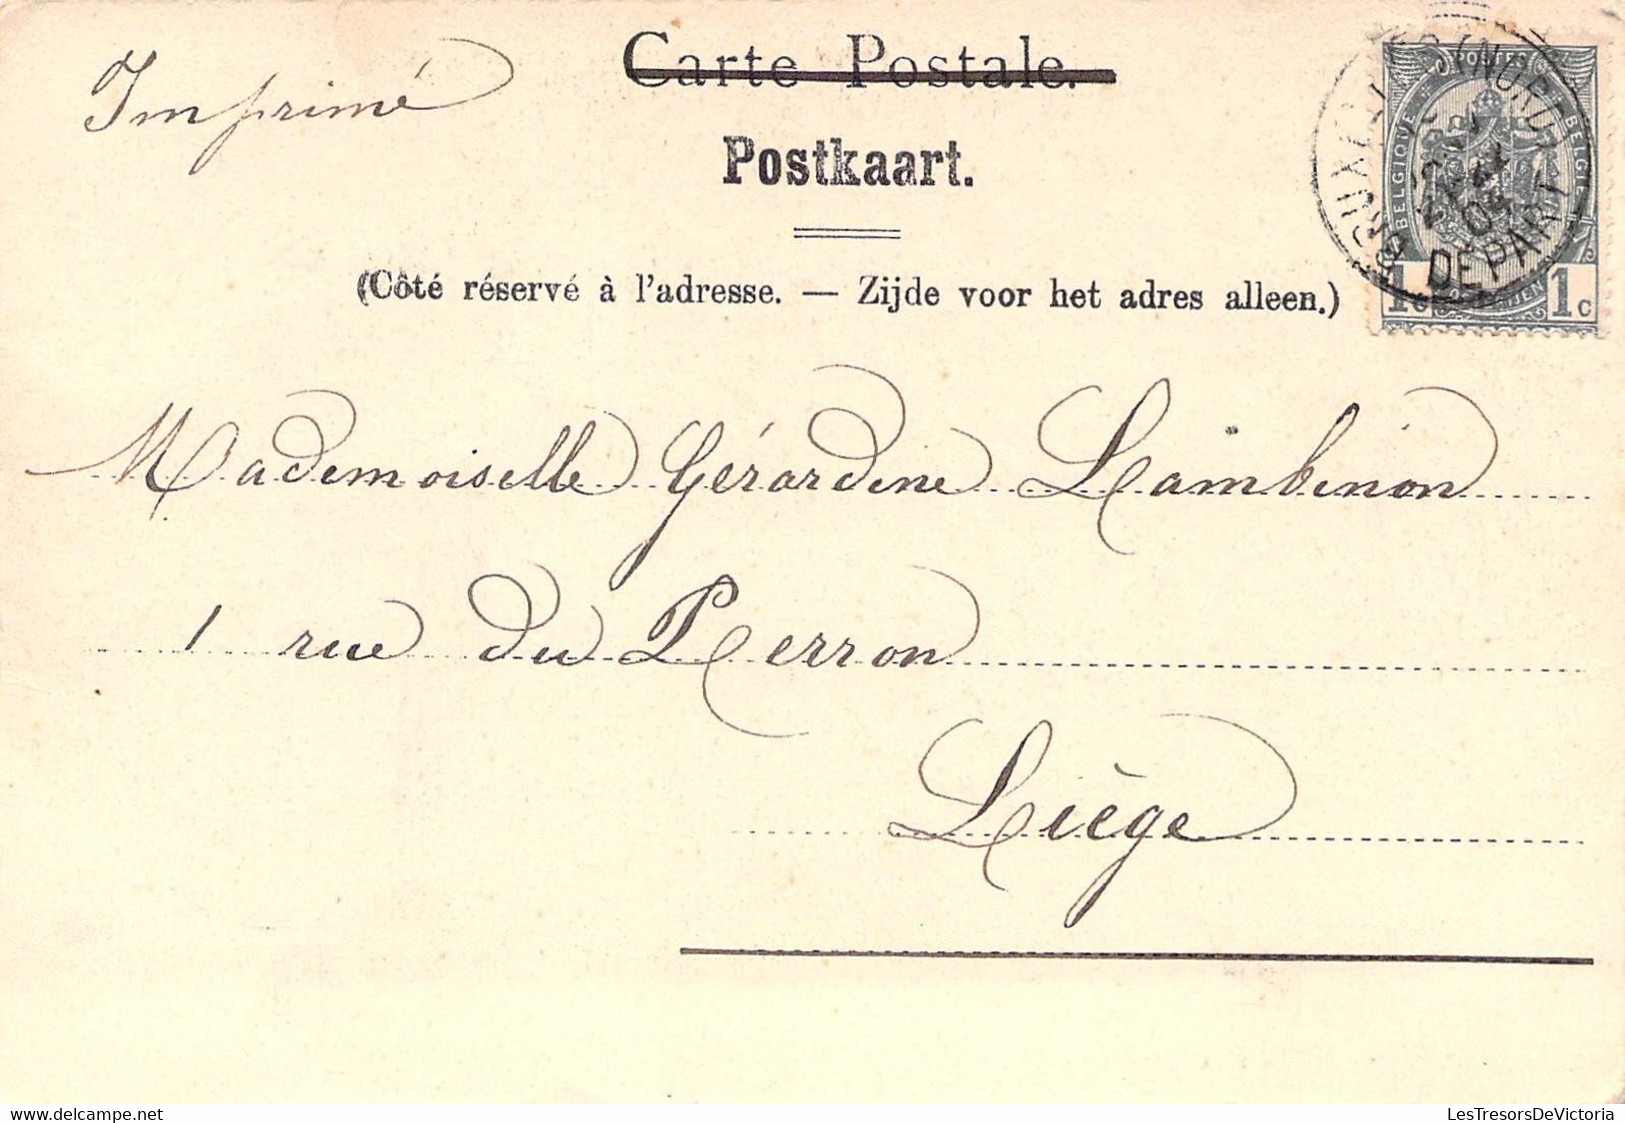 Imprimé
Carte Postale.
Postkaart.
(Côté réservé à l'adresse. — Zijde voor het adres alleen.)
BRUXELLES (NORD)
DÉPART
POSTES
BELGIQUE
BELGIË
1c
1c
Mademoiselle Gérardine Lambinon
1 rue du Perron
Liège
www.delcampe.net
LesTresorsDeVictoria